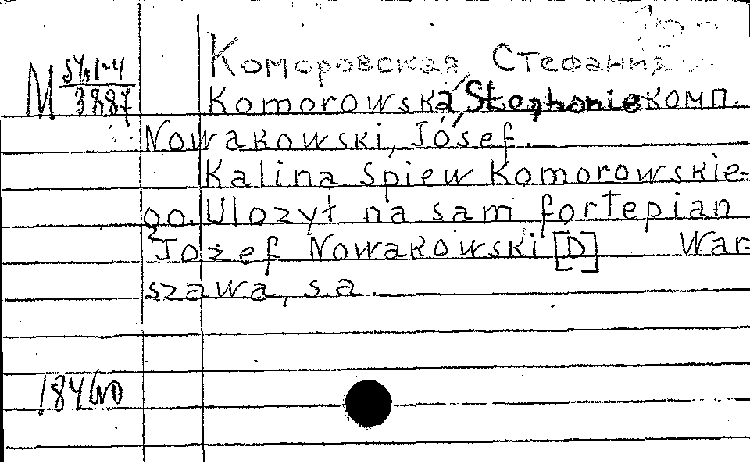 Коморовская, Стефания
M 54,1-4 / 3887
Komorowska, Stephanie комп.
Nowakowski, Jósef.
Kalina Spiew Komorowskie-
go. Ulozył na sam fortepian
Jozef Nowakowski [D] War-
szawa, s.a.